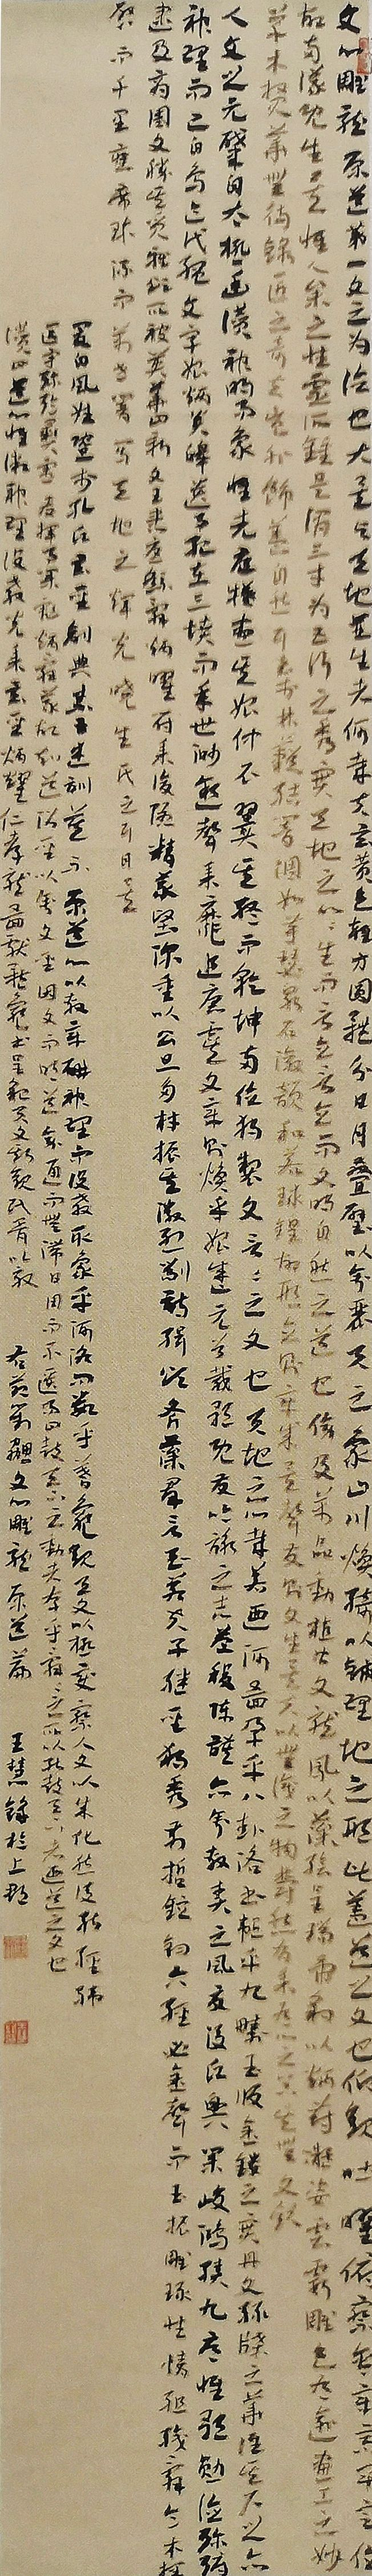 文心雕龍原道第一文之為德也大矣與天地並生者何哉夫玄黃色雜方圓體分日月疊璧以垂麗天之象山川煥綺以鋪理地之形此蓋道之文也仰觀吐曜俯察含章高卑定位
故兩儀既生矣惟人參之性靈所鍾是謂三才為五行之秀實天地之心心生而言立言立而文明自然之道也傍及萬品動植皆文龍鳳以藻繪呈瑞虎豹以炳蔚凝姿雲霞雕色有逾畫工之妙
草木賁華無待錦匠之奇夫豈外飾蓋自然耳至於林籟結響調如竽瑟泉石激韻和若球鍠故形立則章成矣聲發則文生矣夫以無識之物鬱然有采有心之器其無文歟
人文之元肇自太極幽讚神明易象惟先庖犧畫其始仲尼翼其終而乾坤兩位獨制文言言之文也天地之心哉若迺河圖孕乎八卦洛書韞乎九疇玉版金鏤之實丹文綠牒之華誰其尸之亦
神理而已自鳥跡代繩文字始炳炎皞遺事紀在三墳而年世渺邈聲采靡追唐虞文章則煥乎始盛元首載歌既發吟詠之志益稷陳謨亦垂敷奏之風夏后氏興業峻鴻績九序惟歌勳德彌縟
逮及商周文勝其質雅頌所被英華日新文王患憂繇辭炳曜符采複隱精義堅深重以公旦多材振其徽烈剬詩緝頌斧藻群言至若夫子繼聖獨秀前哲鎔鈞六經必金聲而玉振雕琢性情組織辭令木鐸
啟而千里應席珍流而萬世響寫天地之輝光曉生民之耳目矣
爰自風姓暨於孔氏玄聖創典素王述訓莫不原道心以敷章研神理而設教取象乎河洛問數乎蓍龜觀天文以極變察人文以成化然後能經緯
區宇彌綸彝憲發揮事業彪炳辭義故知道沿聖以垂文聖因文而明道旁通而無滯日用而不匱易曰鼓天下之動者存乎辭辭之所以能鼓天下者迺道之文也
贊曰道心惟微神理設教光采玄聖炳耀仁孝龍圖獻體龜書呈貌天文斯觀民胥以傚 右節劉勰文心雕龍原道篇 王慧鋒於上郡